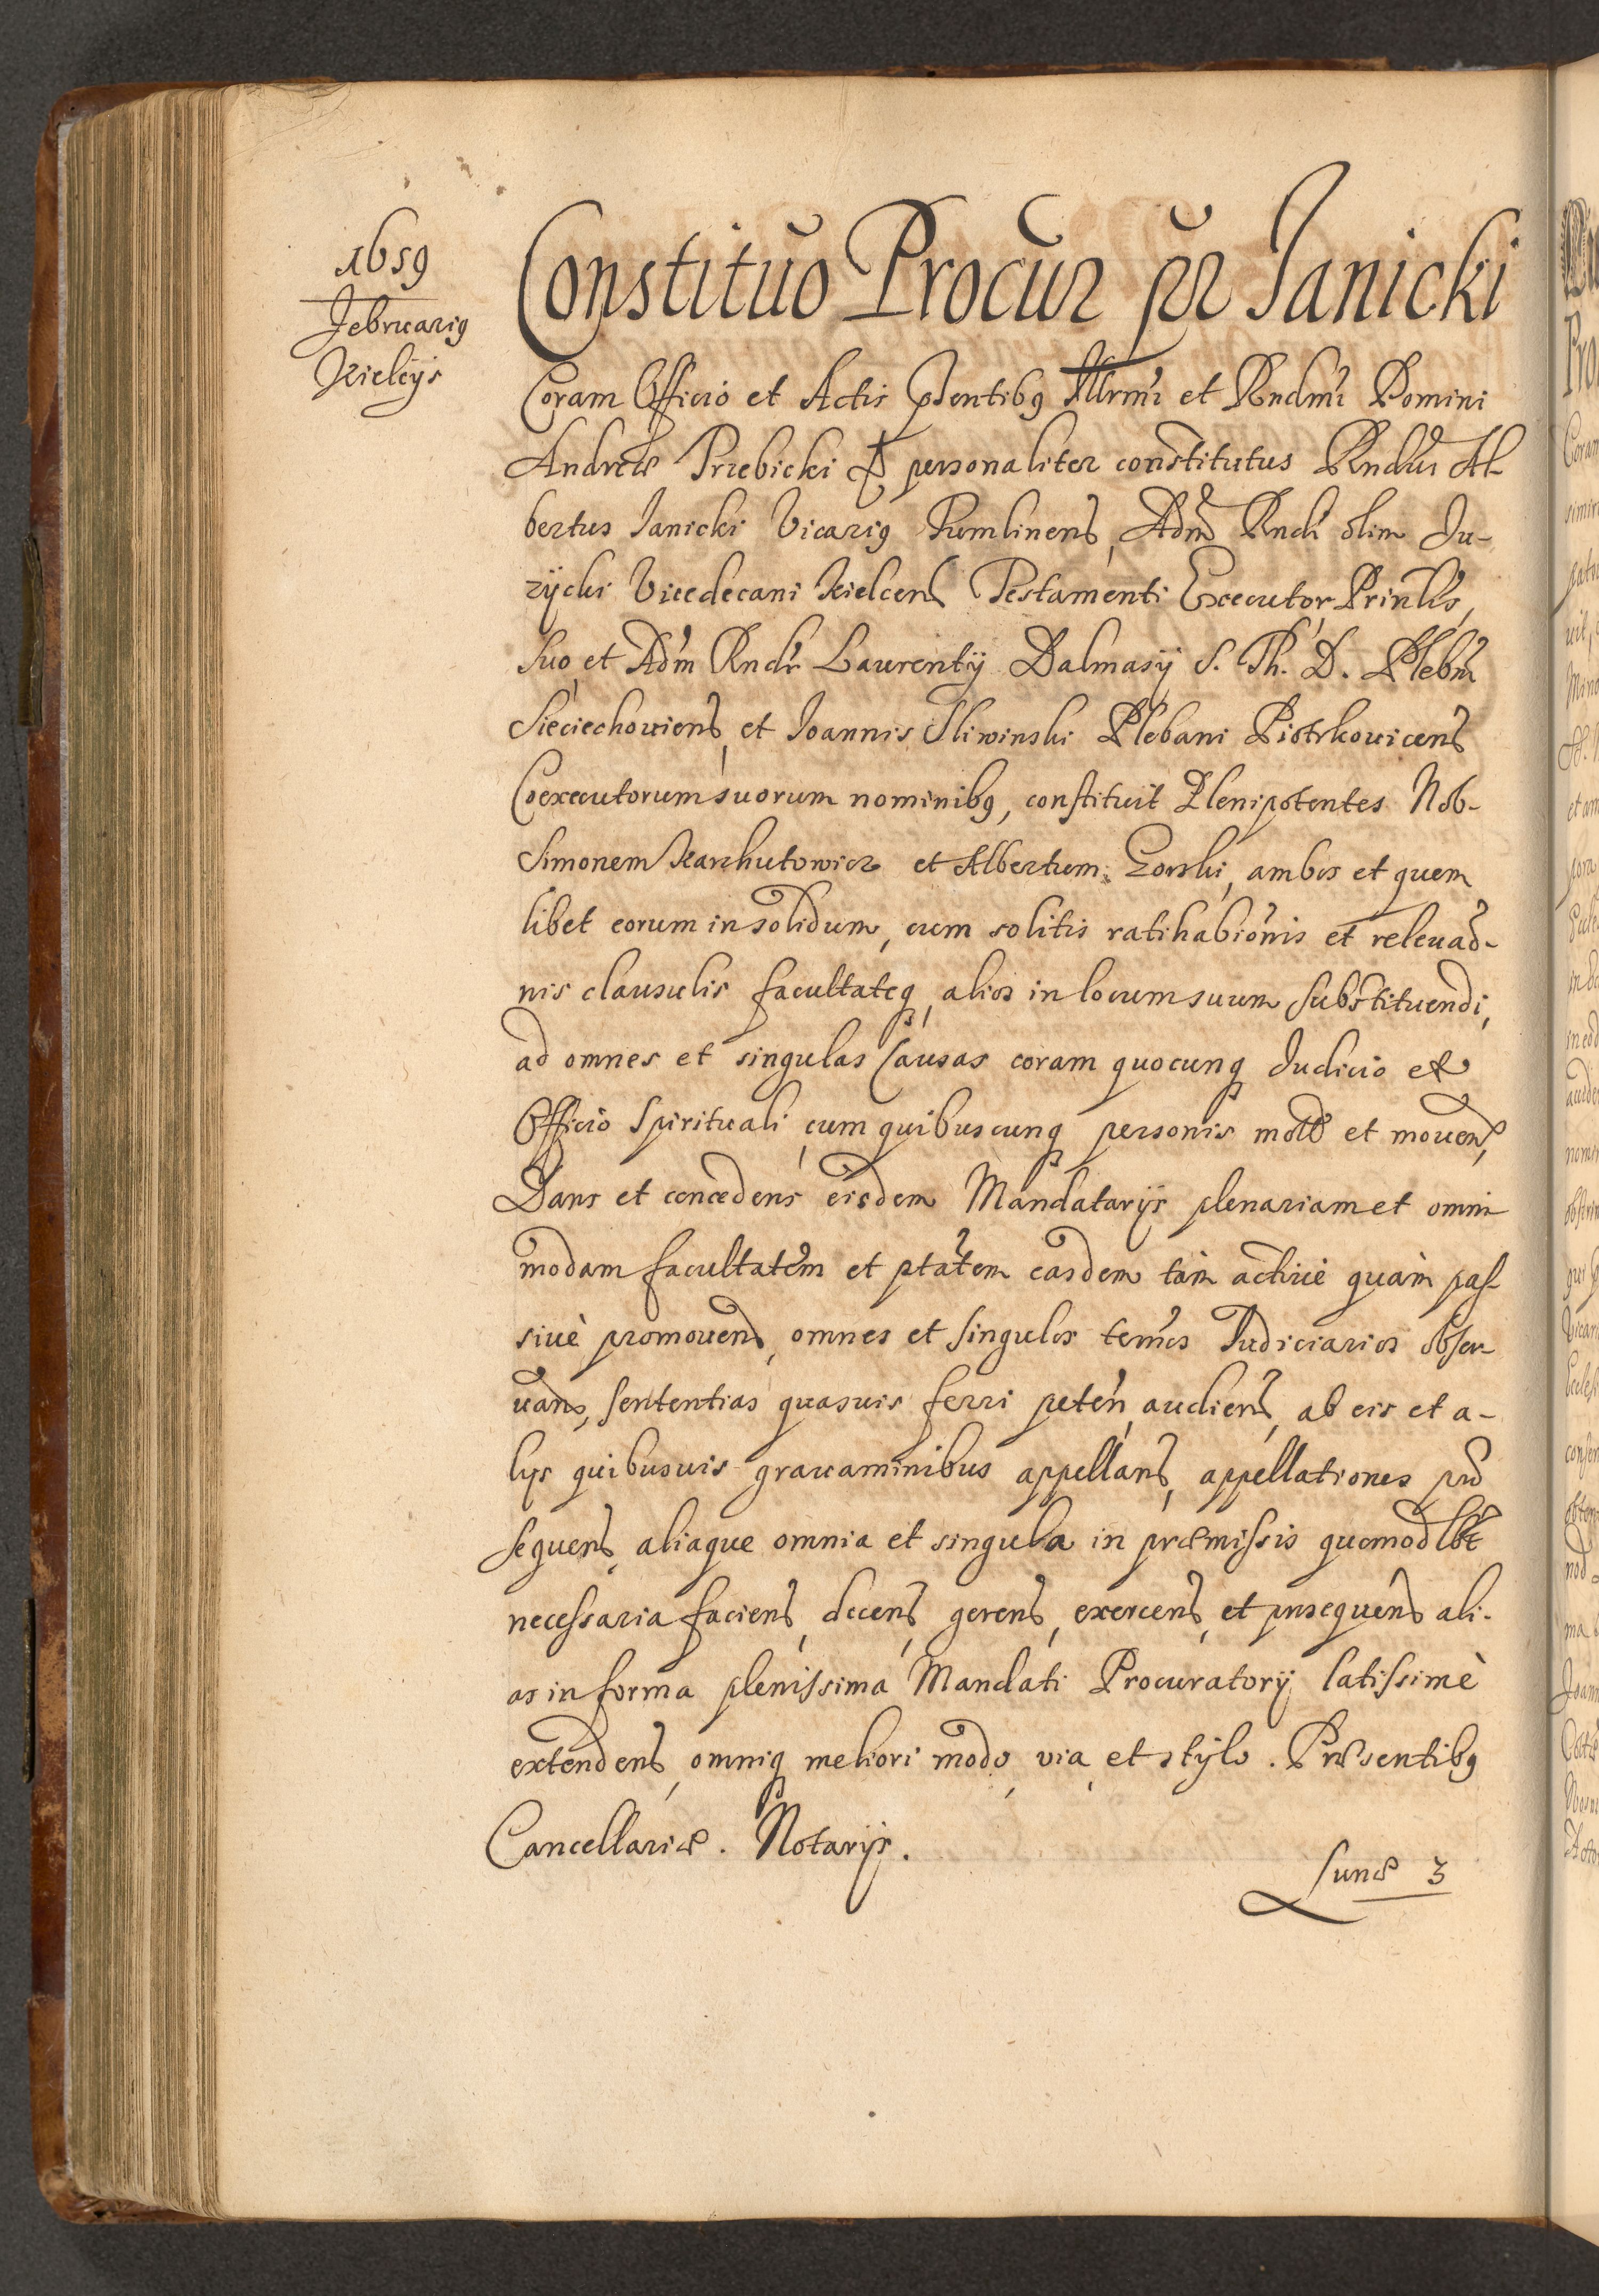 1659
Februariꝯ
Kielcijs
Constituõ Procur pr̃ Janicki
Coram Officio et Actis Pñtibꝯ Illrmi et Rndmi Domini
Andreæ Trzebicki & personaliter constitutus Rndus Al-
bertus Janicki Vicariꝯ Tumlinens, Adm Rndi olim Ju-
rzycki Vicedecani Kielcens Testamenti Executor Prinlis,
suo, et Adm Rndr Laurentij Dalmasij S. Th. D. Plebni
Sieciechouiens, et Joannis Sliwinski Plebani Piotrkouicens
Coexecutorum suorum nominibꝯ, constituit Plenipotentes Nob-
Simonem Karchutowicz et Albertum Gorski, ambos et quem
libet eorum in solidum, cum solitis ratihabiõnis et releuaõ-
nis clausulis facultateq, alios in locum suum substituendi,
ad omnes et singulas Causas coram quocunq Judicio et
Officio Spirituali, cum quibuscunq personis mot et mouen,
Dans et concedens eisdem Mandatarijs plenariam et omni-
modam facultatem et ptãtem easdem tàm actiuè quàm pas-
siuè promouend, omnes et singulos termos Judiciarios obser-
uand, sententias quasuis ferri peten, audiend, ab eis et a-
lijs quibusuis grauaminibus appelland, appellationes pro
sequend, aliaque omnia et singula in præmissis quomodlbt
necessaria faciend, dicend, gerend, exercend, et prosequend ali-
as in forma plenissima Mandati Procuratorij latissimè
extendend, omniq meliori modo, via, et stylo. Præsentibꝯ
Cancellariæ. Notarijs.
Lunæ 3